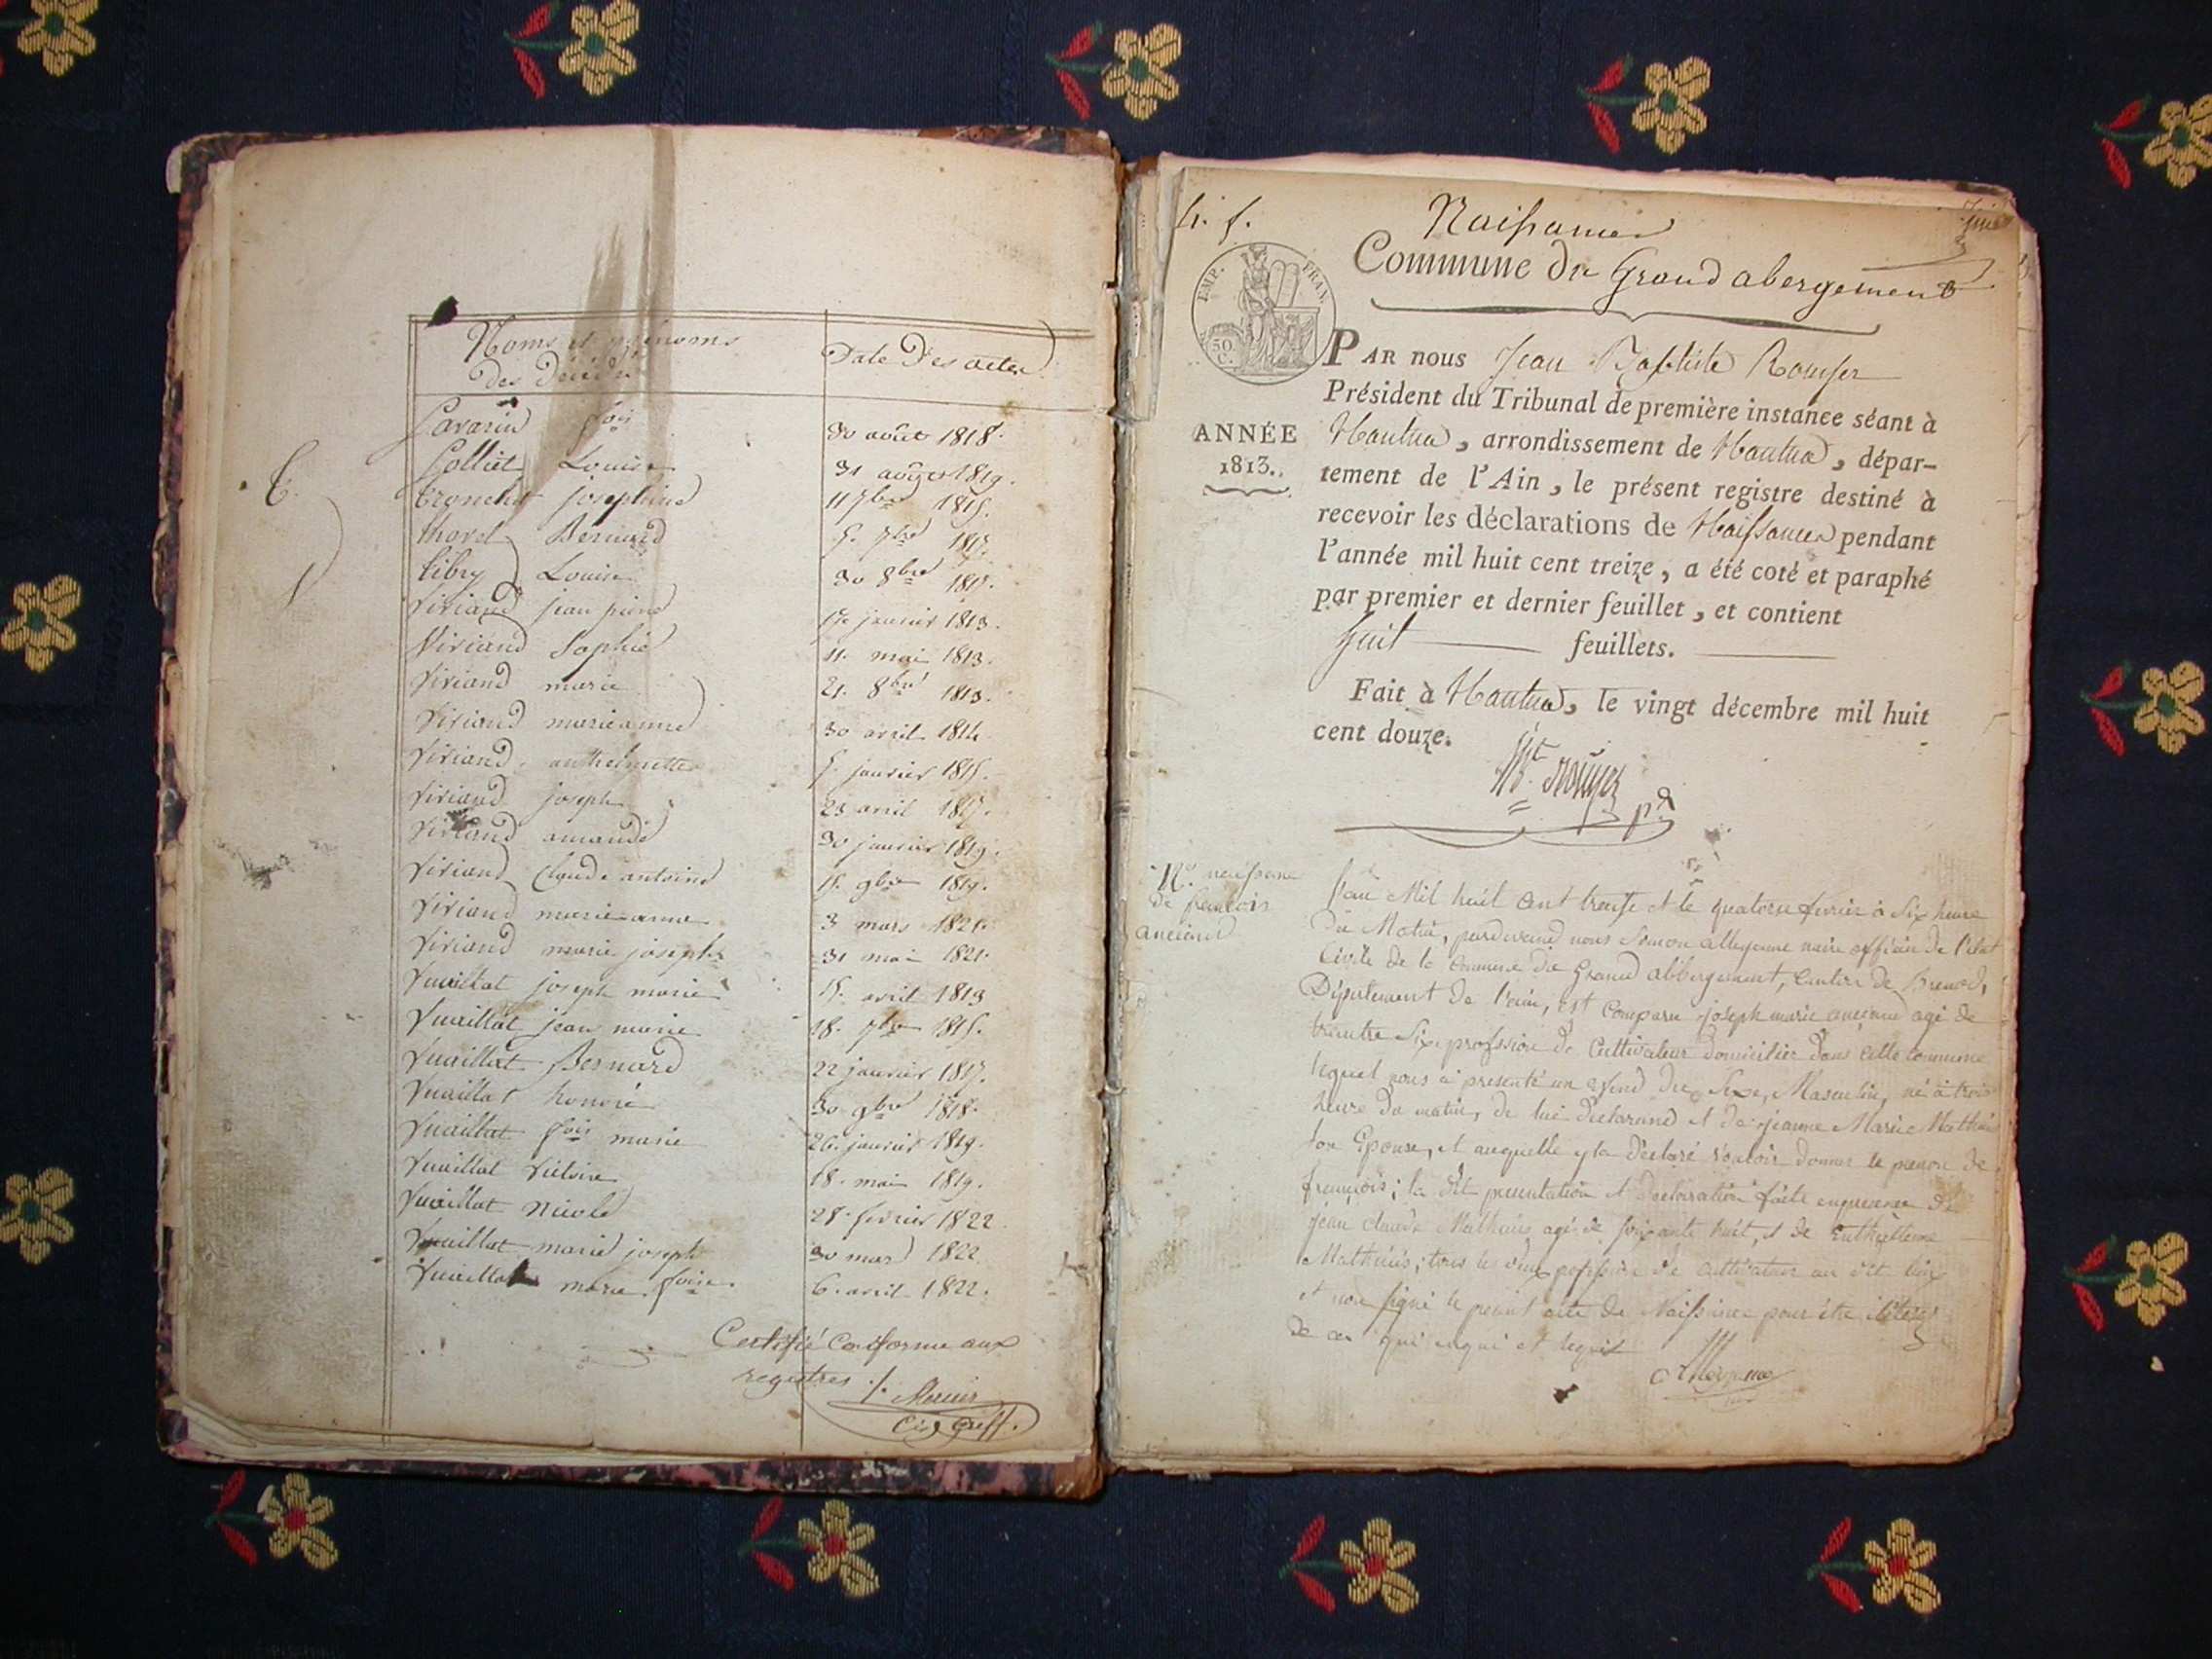 Noms et prénoms
des décédés
Date des actes
Savarin fois 30 août 1818.
Colliet Louise 31 août 1819.
t.
tronchet josephine 11 7bre 1815.
thorel Bernard 5. 7bre 1817.
tibry Louise 30 8bre 1817.
V
Viviand jean pierre 17 janvier 1813.
Viviand Sophie 11. mai 1813.
Viviand marie 21. 8bre 1813.
Viviand marieanne 30 avril 1814
Viviand anthelmette 5. janvier 1815.
Viviand joseph 23 avril 1817.
Viviand amandé 30 janvier 1819.
Viviand Claude antoine 15. 9bre 1819.
Viviand marie-anne 3 mars 1821.
Viviand marie josephe 31 mai 1821.
Vuaillat joseph marie 15. avril 1813
Vuaillat jean marie 18. 7bre 1815.
Vuaillat Bernard 22 janvier 1817.
Vuaillat honoré 30 9bre 1818.
Vuaillat fois marie 26. janvier 1819.
Vuaillat Victoire 18. mai 1819.
Vuaillat Nicole 28. février 1822.
Vuaillat marie joseph 30 mars 1822
Vuaillat marie foise. 6. avril 1822.
Certifié Conforme aux
registres ./. Mercier
Cis Greff.
Naissances
Commune du Grand abergement
EMP. FRAN.
50
C.
ANNÉE
1813.
PAR nous Jean Baptiste Rouyer
Président du Tribunal de première instance séant à
Nantua, arrondissement de Nantua, dépar-
tement de l'Ain, le présent registre destiné à
recevoir les déclarations de Naissances pendant
l'année mil huit cent treize, a été coté et paraphé
par premier et dernier feuillet, et contient
huit feuillets.
Fait à Nantua, le vingt décembre mil huit
cent douze.
Bt. Rouyer
pt
No. naissance
de françois
ancian
L'an Mil huit Cent treise et le quatorse fevrier à Six heure
Du Matin, pardevand nous Simon alleyenne maire officier de l'etat
Civile de la commune du Grand abbergement, Canton de Brenod,
Département de l'ain, est Comparu joseph marie agé de
trante Six profession de Cultivateur domicilier dans cette commune
lequel nous a presenté un enfend du Sexe Masculin, né à trois
heure du matin, de lui declarand et de jeanne Marie Mathieu
son Epouse, et auquelle y la déclaré vouloir donner le prenon de
françois; la dit presentation et declaration faite en presence de
jean claude Mathieu agé de soixante huit, et de
Mathieu; tous le deux profession de Cultivateur au dit lieu
et nous signé le present acte de Naissance pour être
de ce qui
Alleyenne